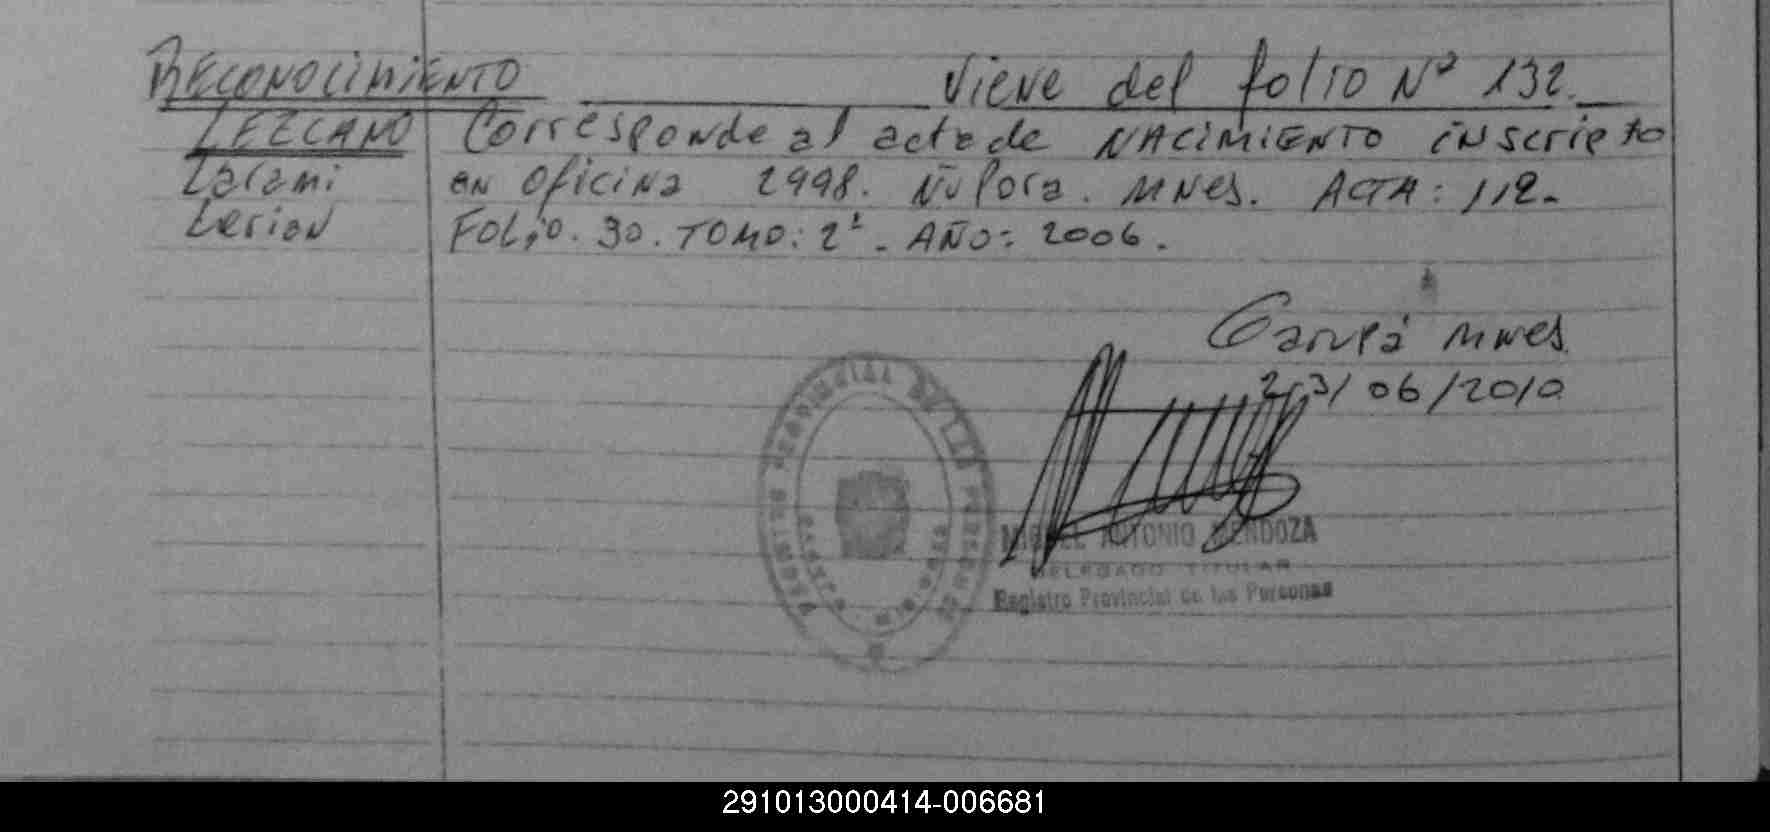 RECONOCIMIENTO
LEZCANO
Viene del folio Nº 132.
Corresponde al acta de NACIMIENTO inscripto
en Oficina 2998. Ñu Pora. Mnes. ACTA: 112.
FOLIO. 30. TOMO: 2º. AÑO: 2006.
Garupá Mnes.
23/06/2010
MIGUEL ANTONIO MENDOZA
DELEGADO TITULAR
Registro Provincial de las Personas
291013000414-006681